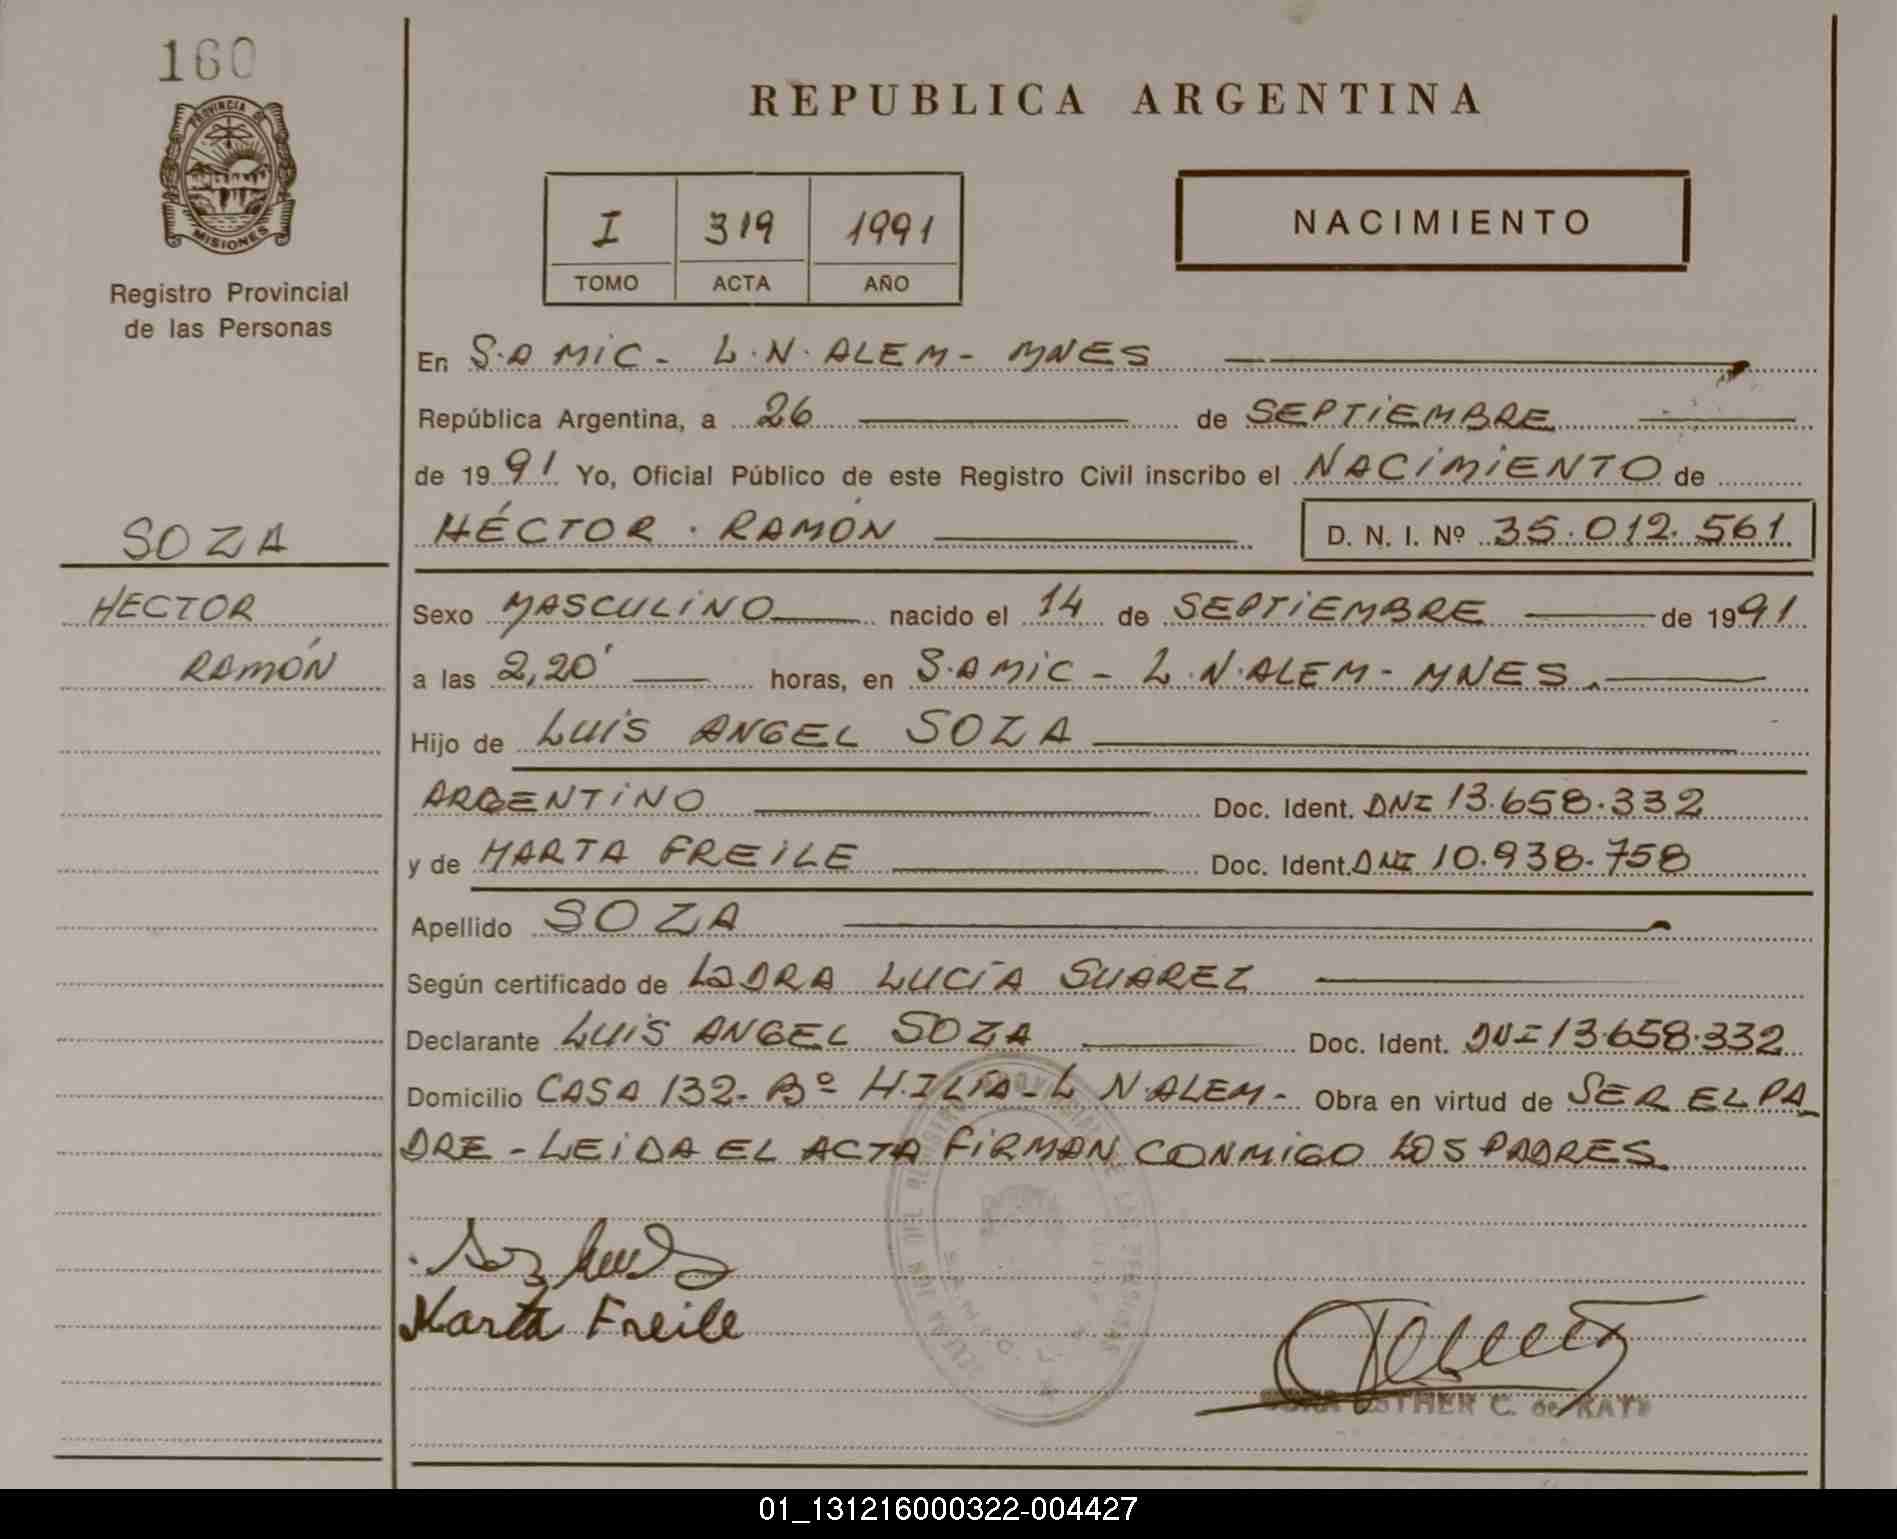 160
PROVINCIA DE
MISIONES
Registro Provincial
de las Personas
REPUBLICA ARGENTINA
I 319 1991
TOMO ACTA AÑO
NACIMIENTO
En S.A MIC - L.N. ALEM - MNES
República Argentina, a 26 de SEPTIEMBRE
de 1991 Yo, Oficial Público de este Registro Civil inscribo el NACIMIENTO de
HÉCTOR RAMÓN D. N. I. Nº 35.012.561
SOZA
HECTOR
RAMÓN
Sexo MASCULINO nacido el 14 de SEPTIEMBRE de 1991
a las 2,20' horas, en S.A MIC - L.N. ALEM - MNES.
Hijo de LUIS ANGEL SOZA
ARGENTINO Doc. Ident. DNI 13.658.332
y de MARTA FREILE Doc. Ident. DNI 10.938.758
Apellido SOZA
Según certificado de LA DRA LUCÍA SUAREZ
Declarante LUIS ANGEL SOZA Doc. Ident. DNI 13.658.332
Domicilio CASA 132 - Bº H. ILIA - L N. ALEM - Obra en virtud de SER EL PA
DRE - LEIDA EL ACTA FIRMAN CONMIGO LOS PADRES.
Marta Freile
ESTHER C. de
01_131216000322-004427